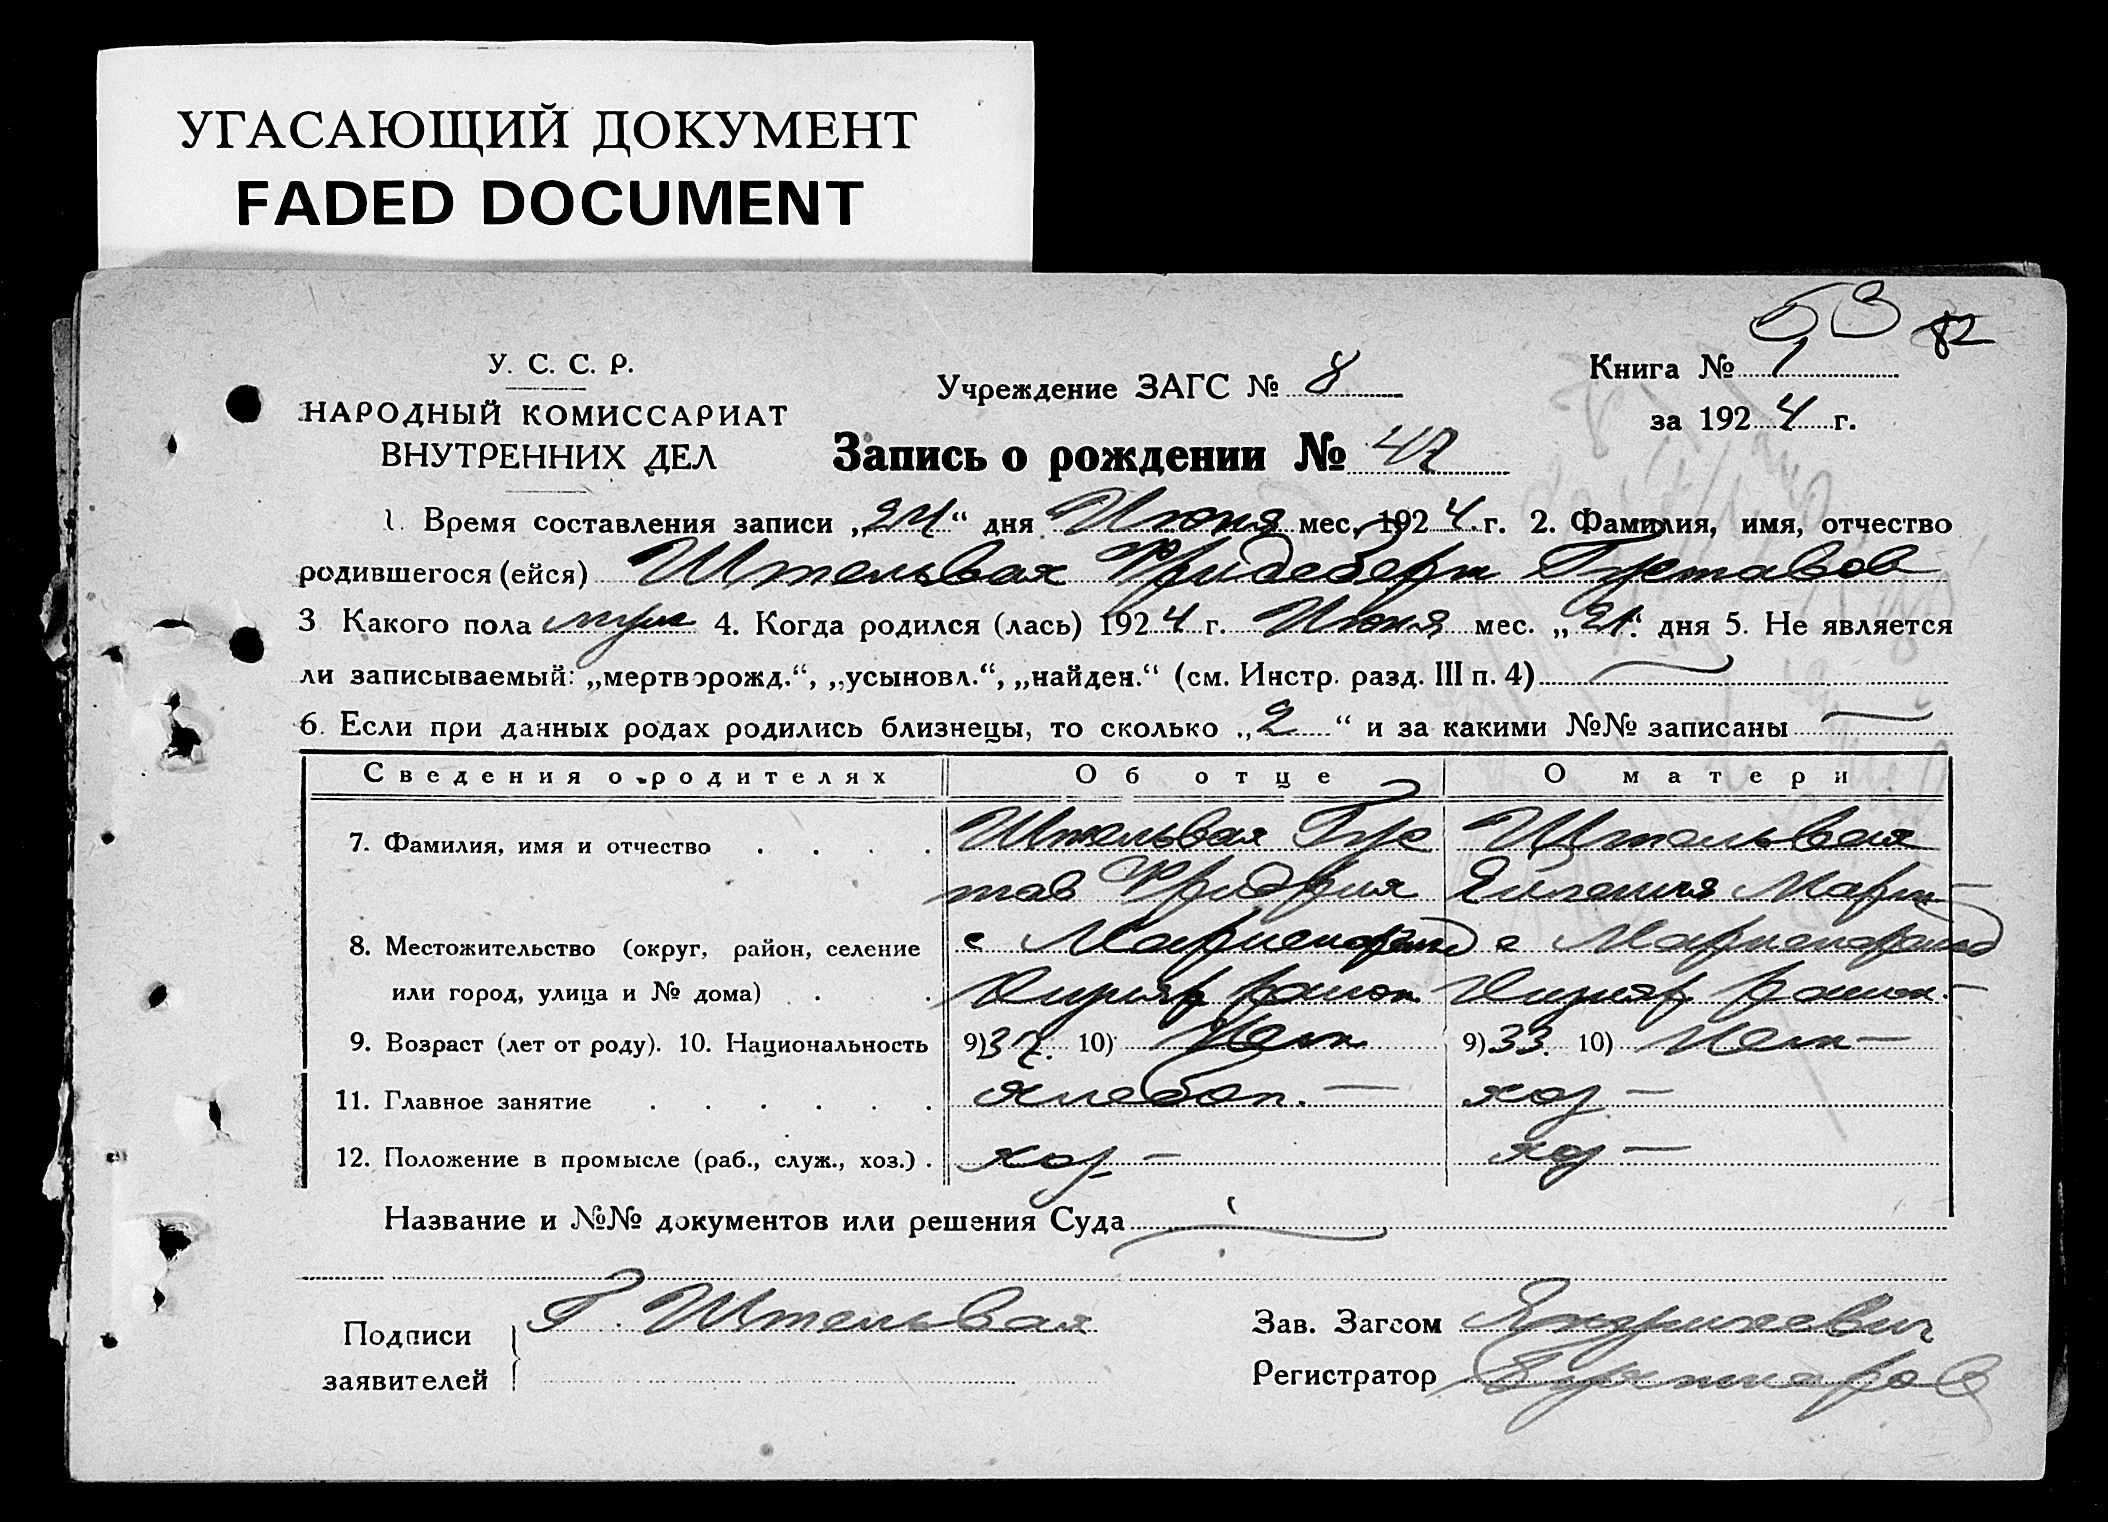 УГАСАЮЩИЙ ДОКУМЕНТ
FADED DOCUMENT
53 82
У. С. С. Р.
НАРОДНЫЙ КОМИССАРИАТ
ВНУТРЕННИХ ДЕЛ
Учреждение ЗАГС № 8
Книга № 1
за 1924 г.
Запись о рождении № 42
1. Время составления записи „24“ дня Июня мес. 1924 г. 2. Фамилия, имя, отчество
родившегося (ейся) Штельвах Фридеберт Густавов
3 Какого пола муж 4. Когда родился (лась) 1924 г. Июня мес. „21“ дня 5. Не является
ли записываемый: „мертворожд.“, „усыновл.“, „найден.“ (см. Инстр. разд. III п. 4)
6. Если при данных родах родились близнецы, то сколько „2“ и за какими №№ записаны
Сведения о родителях Об отце О матери
7. Фамилия, имя и отчество . . . . Штельвах Гус Штельвах
тав Фридрих Март
8. Местожительство (округ, район, селение с с
или город, улица и № дома) . . район район
9. Возраст (лет от роду). 10. Национальность 9) 37. 10) Нем 9) 33. 10) Нем
11. Главное занятие . . . . . . Хлебоп. хоз
12. Положение в промысле (раб., служ., хоз.) . хоз хоз
Название и №№ документов или решения Суда
Подписи
заявителей
Г. Штельвах
Зав. Загсом
Регистратор